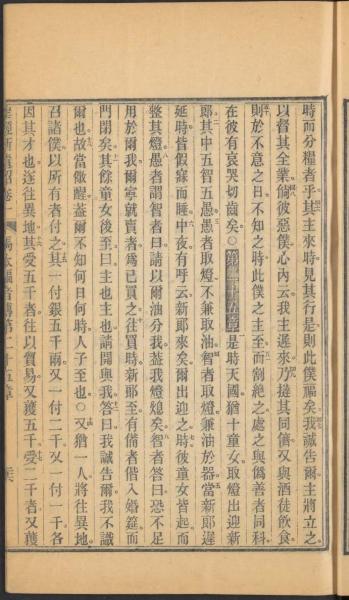 時而分糧者乎其主來時見其行是則此僕福矣我誠告爾主將立之
以督其全業倘彼惡僕心內云我主遲來乃撻其同儕又與酒徒飲食
則於不意之日不知之時此僕之主至而割絕之處之與僞善者同科
在彼有哀哭切齒矣○第二十五章是時天國猶十童女取燈出迎新
郎其中五智五愚愚者取燈不兼取油智者取燈兼油於器當新郎遲
延時皆假寐而睡中夜有呼云新郎來矣爾出迎之時彼童女皆起而
整其燈愚者謂智者曰請以爾油分我蓋我燈熄矣智者答曰恐不足
用於爾我爾寧就賣者爲己買之往買時新郎至有備者偕入婚筵而
門閉矣其餘童女後至曰主也主也請開與我答曰我誠告爾我不識
爾也故當儆醒蓋爾不知何日何時人子至也○又猶一人將往異地
召諸僕以所有者付之其一付銀五千兩又一付二千又一付一千各
因其才也遂往異地其受五千者往以貿易又獲五千受二千者又獲
聖經新遺詔卷一 馬太福音傳第二十五章